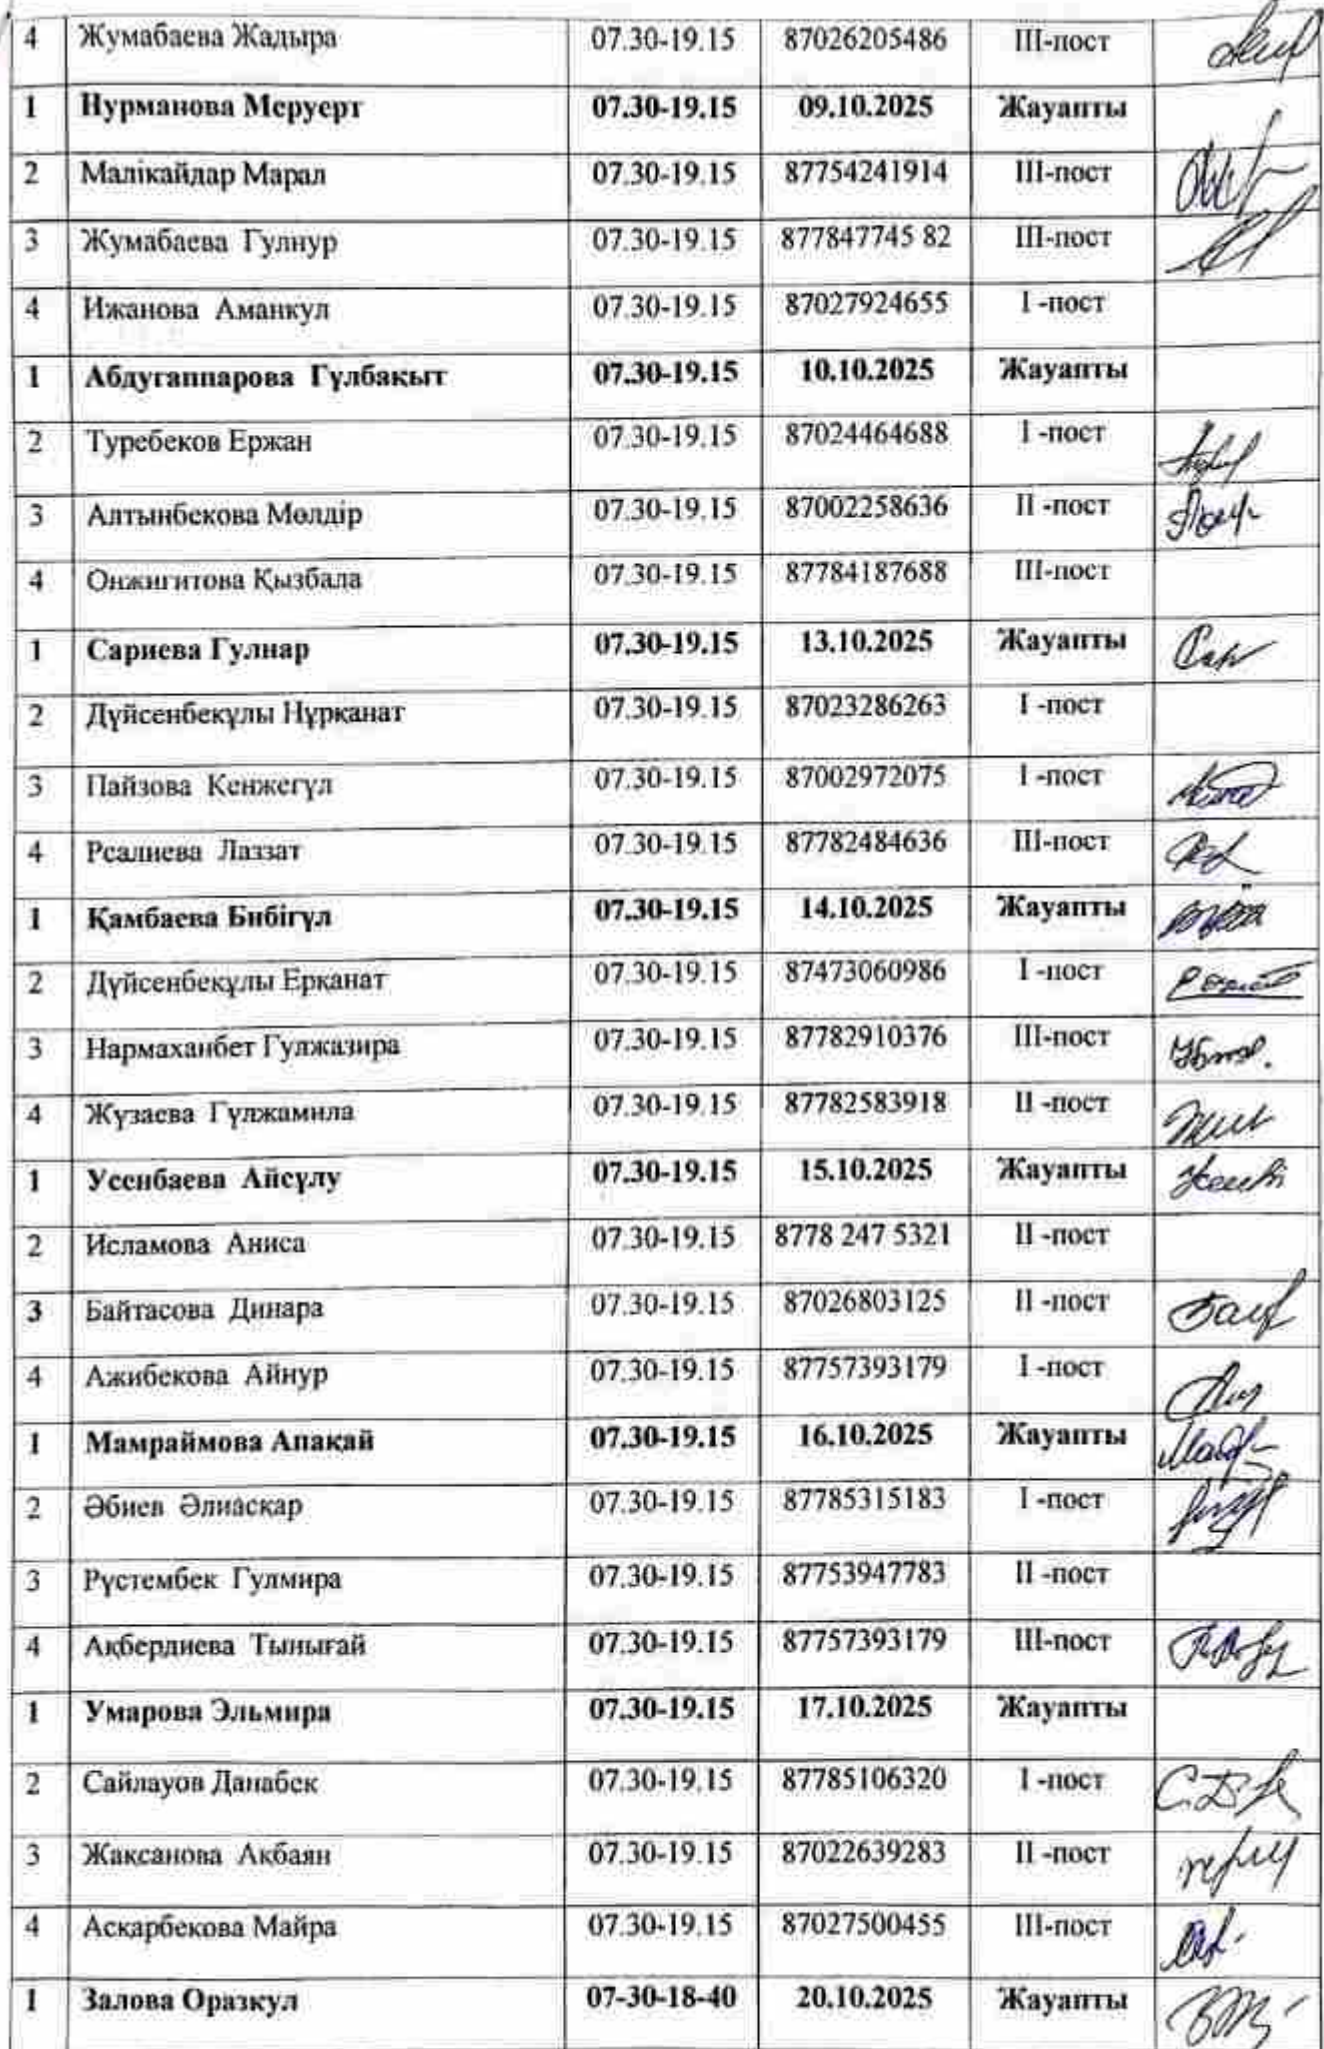 4 Жумабаева Жадыра 07.30-19.15 87026205486 III-пост
1 Нурманова Меруерт 07.30-19.15 09.10.2025 Жауапты
2 Малікайдар Марал 07.30-19.15 87754241914 III-пост
3 Жумабаева Гулнур 07.30-19.15 877847745 82 III-пост
4 Ижанова Аманкул 07.30-19.15 87027924655 I -пост
1 Абдугаппарова Гүлбақыт 07.30-19.15 10.10.2025 Жауапты
2 Туребеков Ержан 07.30-19.15 87024464688 I -пост
3 Алтынбекова Мөлдір 07.30-19.15 87002258636 II -пост
4 Онжигитова Қызбала 07.30-19.15 87784187688 III-пост
1 Сариева Гулнар 07.30-19.15 13.10.2025 Жауапты
2 Дүйсенбекұлы Нұрқанат 07.30-19.15 87023286263 I -пост
3 Пайзова Кенжегүл 07.30-19.15 87002972075 I -пост
4 Рсалиева Лаззат 07.30-19.15 87782484636 III-пост
1 Қамбаева Бибігүл 07.30-19.15 14.10.2025 Жауапты
2 Дүйсенбекұлы Ерқанат 07.30-19.15 87473060986 I -пост
3 Нармаханбет Гулжазира 07.30-19.15 87782910376 III-пост
4 Жүзаева Гүлжамила 07.30-19.15 87782583918 II -пост
1 Усенбаева Айсұлу 07.30-19.15 15.10.2025 Жауапты
2 Исламова Аниса 07.30-19.15 8778 247 5321 II -пост
3 Байтасова Динара 07.30-19.15 87026803125 II -пост
4 Ажибекова Айнур 07.30-19.15 87757393179 I -пост
1 Мамраймова Апақай 07.30-19.15 16.10.2025 Жауапты
2 Әбиев Әлиасқар 07.30-19.15 87785315183 I -пост
3 Рүстембек Гулмира 07.30-19.15 87753947783 II -пост
4 Ақбердиева Тынығай 07.30-19.15 87757393179 III-пост
1 Умарова Эльмира 07.30-19.15 17.10.2025 Жауапты
2 Сайлауов Данабек 07.30-19.15 87785106320 I -пост
3 Жақсанова Ақбаян 07.30-19.15 87022639283 II -пост
4 Асқарбекова Майра 07.30-19.15 87027500455 III-пост
1 Залова Оразкул 07-30-18-40 20.10.2025 Жауапты